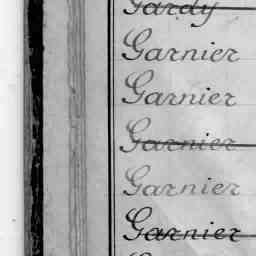 Gardy
Garnier
Garnier
Garnier
Garnier
Garnier